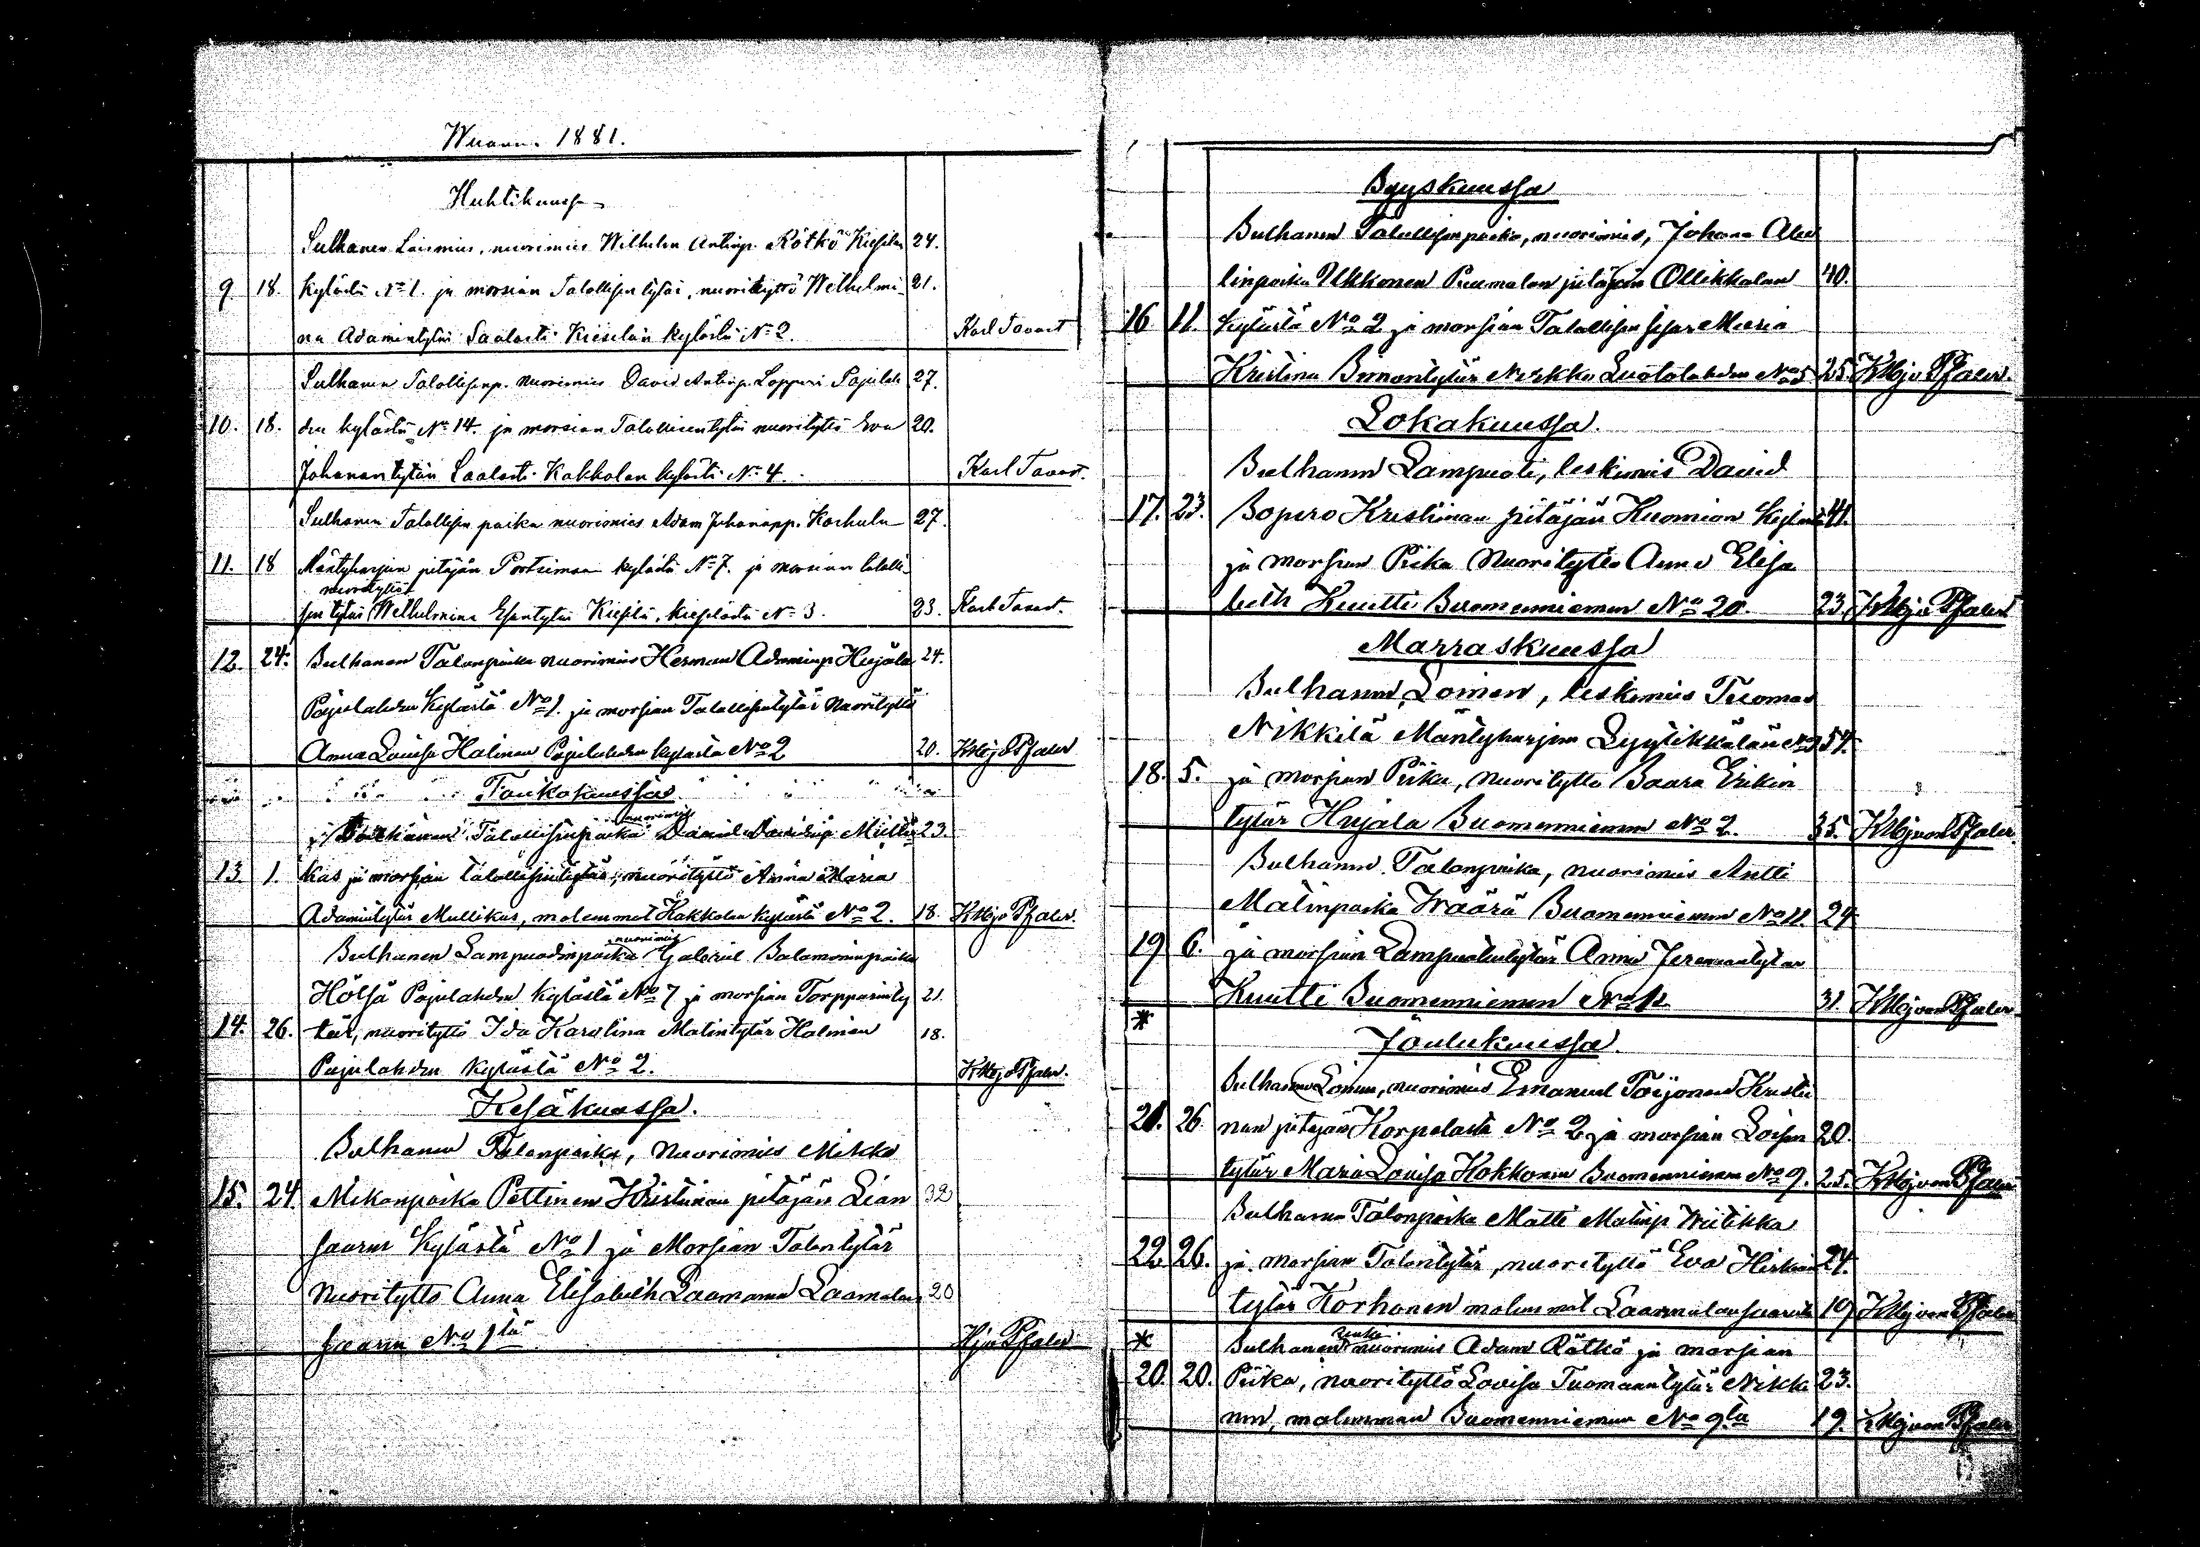 Wuonna 1881.
Huhtikuussa
Sulhanen Loismies, nuorimies Wilhelm Antinp. Rötkö Kiesilän 24.
9. 18. kylästä No 1. ja morsian Talollisen tytär, nuorityttö Wilhelmi- 21.
na Adamintytär Saalasti Kiesilän kylästä No 2. Karl Tavast
Sulhanen Talollisenp. nuorimies David Antinp. Lopperi Pajulah 27.
10. 18. den kylästä No 14. ja morsian Talollisentytär nuorityttö Eva 20.
Johanantytär Saalasti Kakkolan kylästä No 4. Karl Tavast.
Sulhanen Talollisen poika nuorimies Adam Juhananp. Karhula 27.
11. 18 Mäntyharjun pitäjän Pertsimaa kylästä No 7. ja morsian talolli-
nuorityttö
sen tytär Wilhelmina Esantytär Kiesilä, Kiesilästä No 3. 23. Karl Tavast.
12. 24. Sulhanen Talonpoika nuorimies Herman Adaminp Hujala 24.
Pajulahden Kylästä No 1. ja morsian Talollisentytär Nuorityttö
Anna Lovisa Halinen Pajulahden kylästä No 2 20. KHjvPfaler
Toukokuussa
nuorimies
Sulhanen Talollisenpoika Daniel Danielinp Mulli 23.
13. 1. kas ja morsian talollisentytär, nuorityttö Anna Maria
Adamintytär Mullikas, molemmat Kakkolan kylästä No 2. 18. KHjv Pfaler.
nuorimies
Sulhanen Lampuodinpoika Gabriel Salomoninpoika
Hölsä Pajulahden kylästä No 7 ja morsian Torpparinty 21.
14. 26. tär, nuorityttö Ida Karolina Matintytär Halinen 18.
Pajulahden kylästä No 2. KHjvPfaler.
Kesäkuussa.
Sulhanen Talonpoika, nuorimies Mikko
15. 24. Mikonpoika Pettinen Kristiinan pitäjän Lian 32
saaren Kylästä No 1 ja Morsian Talontytär
nuorityttö Anna Elisabeth Laamanen Laamalan 20
saaren No 1tä HjvPfaler
Syyskuussa
Sulhanen Talollisenpoika, nuorimies, Johana Abel
linpoika Ukkonen Puumalan pitäjän Ollikkalan 40.
16 11. kylästä No 2 ja morsian Talollisen sisar Maria
Kristina Simontytär Kirkko Luotolahden No 5 25. KHjv Pfaler.
Lokakuussa.
Sulhanen Lampuoti, leskimies David
17. 23. Sopero Kristiinan pitäjän Kuomion kylästä 41.
ja morsian Piika Nuorityttö Anna Elisa
beth Kuutti Suomenniemen No 20. 23. KHjv Pfaler
Marraskuussa
Sulhanen, Loinen, leskimies Tuomas
Nikkilä Mäntyharjun Lyytikkälän No 3 54.
18. 5. ja morsian Piika, nuorityttö Saara Erikin
tytär Hujala Suomenniemen No 2. 35. KHjvonPfaler.
Sulhanen Talonpoika, nuorimies Antti
Matinpoika Wäärä Suomenniemen No 11. 24.
19 6. ja morsian Lampuotintytär Anna Jeremiantytär
Kuutti Suomenniemen No 12 31. KHjvonPfaler
*
Joulukuussa.
Sulhanen Loinen, nuorimies Emanuel Toijonen Kristii
21. 26 nan pitäjän Korpelasta No 2 ja morsian Loisen 20.
tytär Maria Lovisa Kokkonen Suomenniemen No 9. 25. KHjvonPfaler
Sulhanen Talonpoika Matti Matinp Wiitikka
22. 26. ja morsian Talontytär, nuorityttö Eva Heikin 24.
tytär Korhonen molemmat Laamalansaaresta 19. KHjvonPfaler
* renki
Sulhanen nuorimies Adam Rötkö ja morsian
20. 20. Piika, nuorityttö Lovisa Tuomaantytär Nikki 23.
nen, molemmat Suomenniemen No 9tä 19. KHjvonPfaler